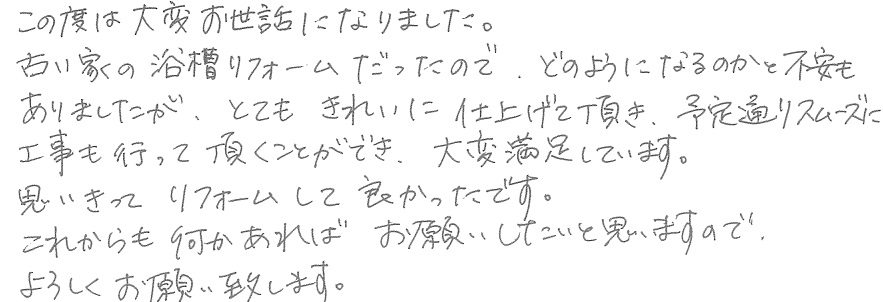 この度は大変お世話になりました。
古い家の浴槽リフォームだったので、どのようになるのかと不安も
ありましたが、とてもきれいに仕上げて頂き、予定通りスムーズに
工事も行って頂くことができ、大変満足しています。
思いきってリフォームして良かったです。
これからも何かあればお願いしたいと思いますので、
よろしくお願い致します。